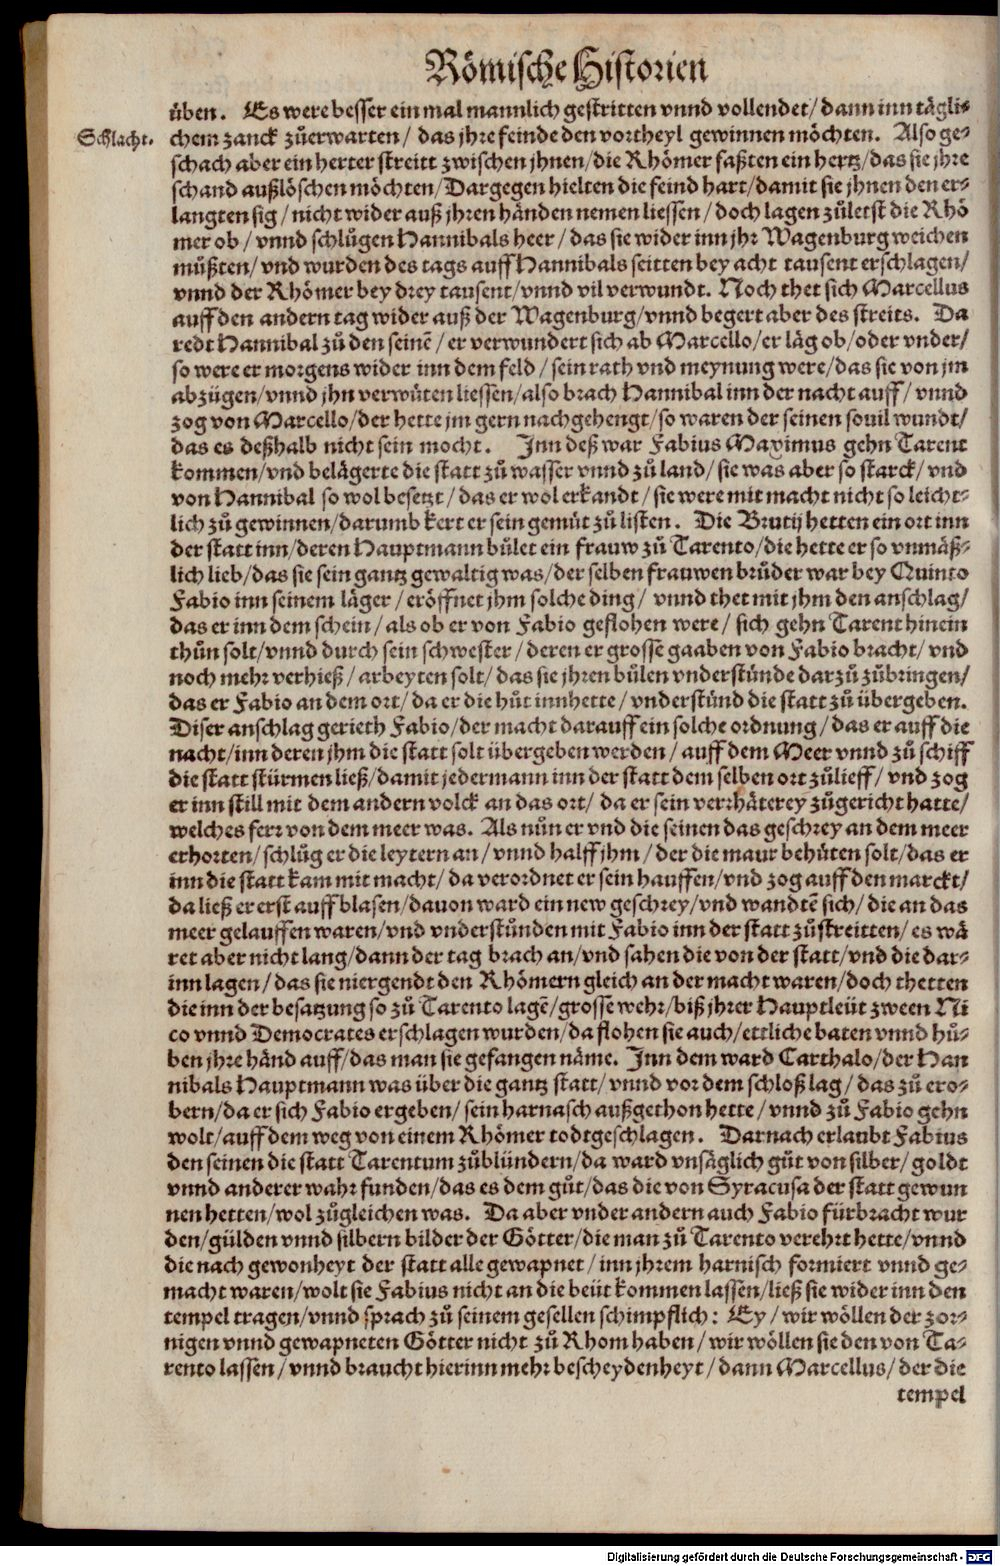 Römische Historien
üben. Es were besser ein mal mannlich gestritten vnnd vollendet/ dann inn tägli-
Schlacht. chem zanck zůerwarten/ das jhre feinde den vortheyl gewinnen möchten. Also ge-
schach aber ein herter streitt zwischen jhnen/ die Rhömer faßten ein hertz/ das sie jhre
schand außlöschen möchten/ Dargegen hielten die feind hart/ damit sie jhnen den er-
langten sig/ nicht wider auß jhren händen nemen liessen/ doch lagen zůletst die Rhö
mer ob/ vnnd schlůgen Hannibals heer/ das sie wider inn jhr Wagenburg weichen
můßten/ vnd wurden des tags auff Hannibals seitten bey acht tausent erschlagen/
vnnd der Rhömer bey drey tausent/ vnnd vil verwundt. Noch thet sich Marcellus
auff den andern tag wider auß der Wagenburg/ vnnd begert aber des streits. Da
redt Hannibal zů den seinẽ/ er verwundert sich ab Marcello/ er läg ob/ oder vnder/
so were er morgens wider inn dem feld/ sein rath vnd meynung were/ das sie von jm
abzügen/ vnnd jhn verwüten liessen/ also brach Hannibal inn der nacht auff/ vnnd
zog von Marcello/ der hette jm gern nachgehengt/ so waren der seinen souil wundt/
das es deßhalb nicht sein mocht. Inn deß war Fabius Maximus gehn Tarent
kommen/ vnd belägerte die statt zů wasser vnnd zů land/ sie was aber so starck/ vnd
von Hannibal so wol besetzt/ das er wol erkandt/ sie were mit macht nicht so leicht-
lich zů gewinnen/ darumb kert er sein gemüt zů listen. Die Brutij hetten ein ort inn
der statt inn/ deren Hauptmann bůlet ein frauw zů Tarento/ die hette er so vnmäß-
lich lieb/ das sie sein gantz gewaltig was/ der selben frauwen brůder war bey Quinto
Fabio inn seinem läger/ eröffnet jhm solche ding/ vnnd thet mit jhm den anschlag/
das er inn dem schein/ als ob er von Fabio geflohen were/ sich gehn Tarent hinein
thůn solt/ vnnd durch sein schwester/ deren er grossẽ gaaben von Fabio bracht/ vnd
noch mehr verhieß/ arbeyten solt/ das sie jhren bůlen vnderstünde darzů zůbringen/
das er Fabio an dem ort/ da er die hůt innhette/ vnderstünd die statt zů übergeben.
Diser anschlag gerieth Fabio/ der macht darauff ein solche ordnung/ das er auff die
nacht/ inn deren jhm die statt solt übergeben werden/ auff dem Meer vnnd zů schiff
die statt stürmen ließ/ damit jedermann inn der statt dem selben ort zůlieff/ vnd zog
er inn still mit dem andern volck an das ort/ da er sein verrhäterey zůgericht hatte/
welches ferr von dem meer was. Als nůn er vnd die seinen das geschrey an dem meer
erhorten/ schlůg er die leytern an/ vnnd halff jhm/ der die maur behüten solt/ das er
inn die statt kam mit macht/ da verordnet er sein hauffen/ vnd zog auff den marckt/
da ließ er erst auff blasen/ dauon ward ein new geschrey/ vnd wandtẽ sich/ die an das
meer gelauffen waren/ vnd vnderstůnden mit Fabio inn der statt zůstreitten/ es wä
ret aber nicht lang/ dann der tag brach an/ vnd sahen die von der statt/ vnd die dar-
inn lagen/ das sie niergendt den Rhömern gleich an der macht waren/ doch thetten
die inn der besatzung so zů Tarento lagẽ/ grosse wehr/ biß jhrer Hauptleüt zween Ni
co vnnd Democrates erschlagen wurden/ da flohen sie auch/ ettliche baten vnnd hů-
ben jhre händ auff/ das man sie gefangen näme. Inn dem ward Carthalo/ der Han
nibals Hauptmann was über die gantz statt/ vnnd vor dem schloß lag/ das zů ero-
bern/ da er sich Fabio ergeben/ sein harnasch außgethon hette/ vnnd zů Fabio gehn
wolt/ auff dem weg von einem Rhömer todtgeschlagen. Darnach erlaubt Fabius
den seinen die statt Tarentum zůblündern/ da ward vnsäglich gůt von silber/ goldt
vnnd anderer wahr funden/ das es dem gůt/ das die von Syracusa der statt gewun
nen hetten/ wol zůgleichen was. Da aber vnder andern auch Fabio fürbracht wur
den/ gülden vnnd silbern bilder der Götter/ die man zů Tarento verehrt hette/ vnnd
die nach gewonheyt der statt alle gewapnet/ inn jhrem harnisch formiert vnnd ge-
macht waren/ wolt sie Fabius nicht an die beüt kommen lassen/ ließ sie wider inn den
tempel tragen/ vnnd sprach zů seinem gesellen schimpflich: Ey/ wir wöllen der zor-
nigen vnnd gewapneten Götter nicht zů Rhom haben/ wir wöllen sie den von Ta-
rento lassen/ vnnd braucht hierinn mehr bescheydenheyt/ dann Marcellus/ der die
tempel
Digitalisierung gefördert durch die Deutsche Forschungsgemeinschaft - DFG